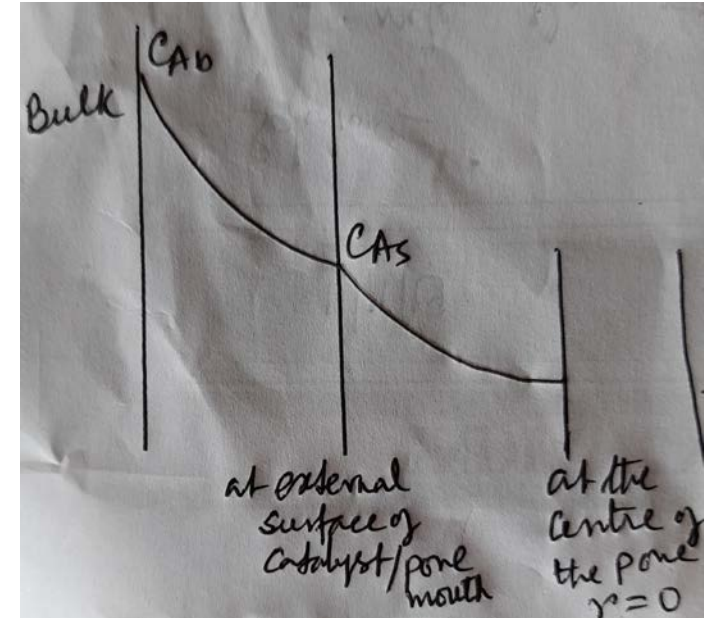 CAb
Bulk
CAs
at external
surface of
catalyst/pore
mouth
at the
centre of
the pore
r=0